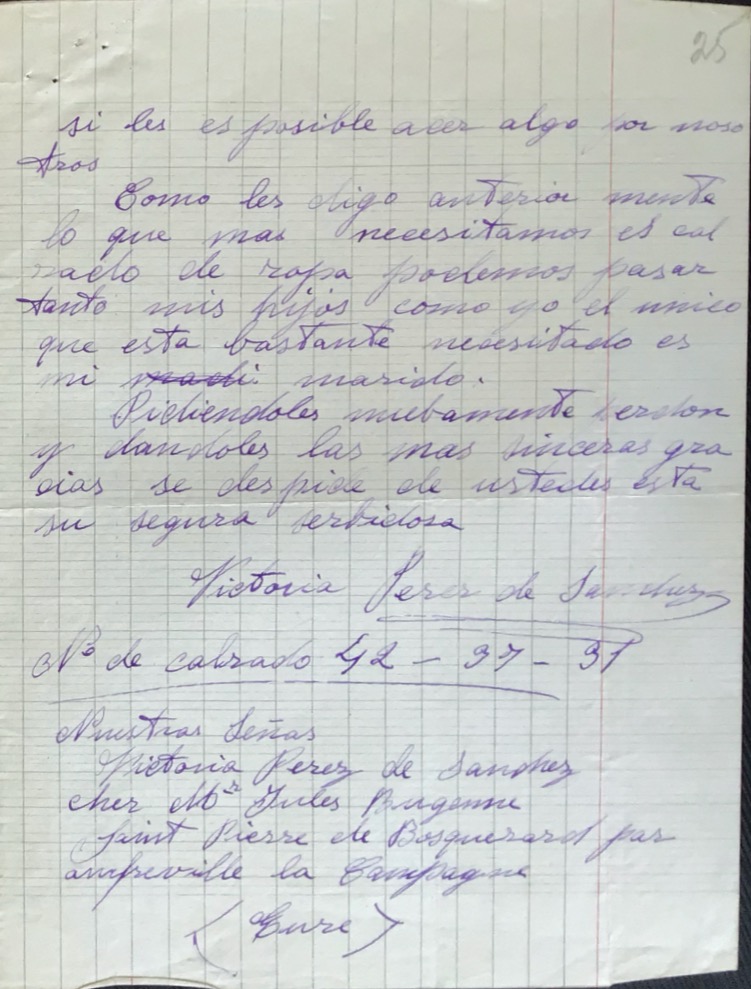 25
si les es posible acer algo por noso
tros
Como les digo anterior mente
lo que mas necesitamos es cal
zado de ropa podemos pasar
tanto mis hijos como yo el unico
que esta bastante necesitado es
mi marido.
Pidiendoles nuebamente perdon
y dandoles las mas sinceras gra
cias se despide de ustedes esta
su segura serbidora
Victoria Perez de Sanchez
Nº de calzado 42 - 37 - 31
Nuestras Señas
Victoria Perez de Sanchez
cher Mr Jules
Saint Pierre de Bosguerard par
amfreville la Campagne
(Eure)